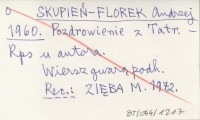 SKUPIEŃ-FLOREK Andrzej
1960. Pozdrowienie z Tatr. -
Rps u autora.
Wiersz gwarą podh.
Rec.: ZIĘBA M. 1972.
BT/044/1217